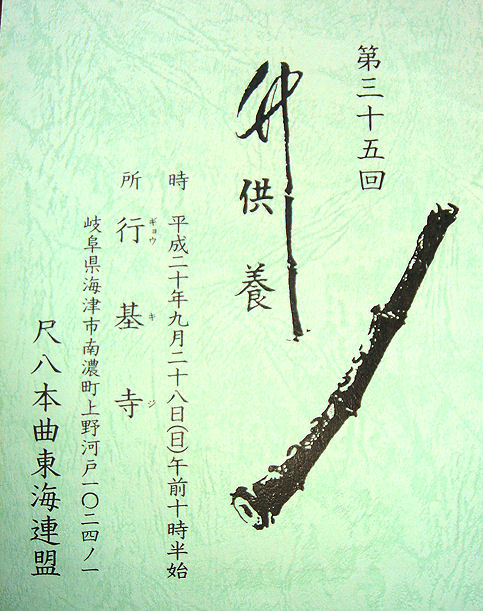 第三十五回
竹供養
時 平成二十年九月二十八日(日)午前十時半始
所 行基寺
ギョウ キ ジ
岐阜県海津市南濃町上野河戸一〇二四ノ一
尺八本曲東海連盟